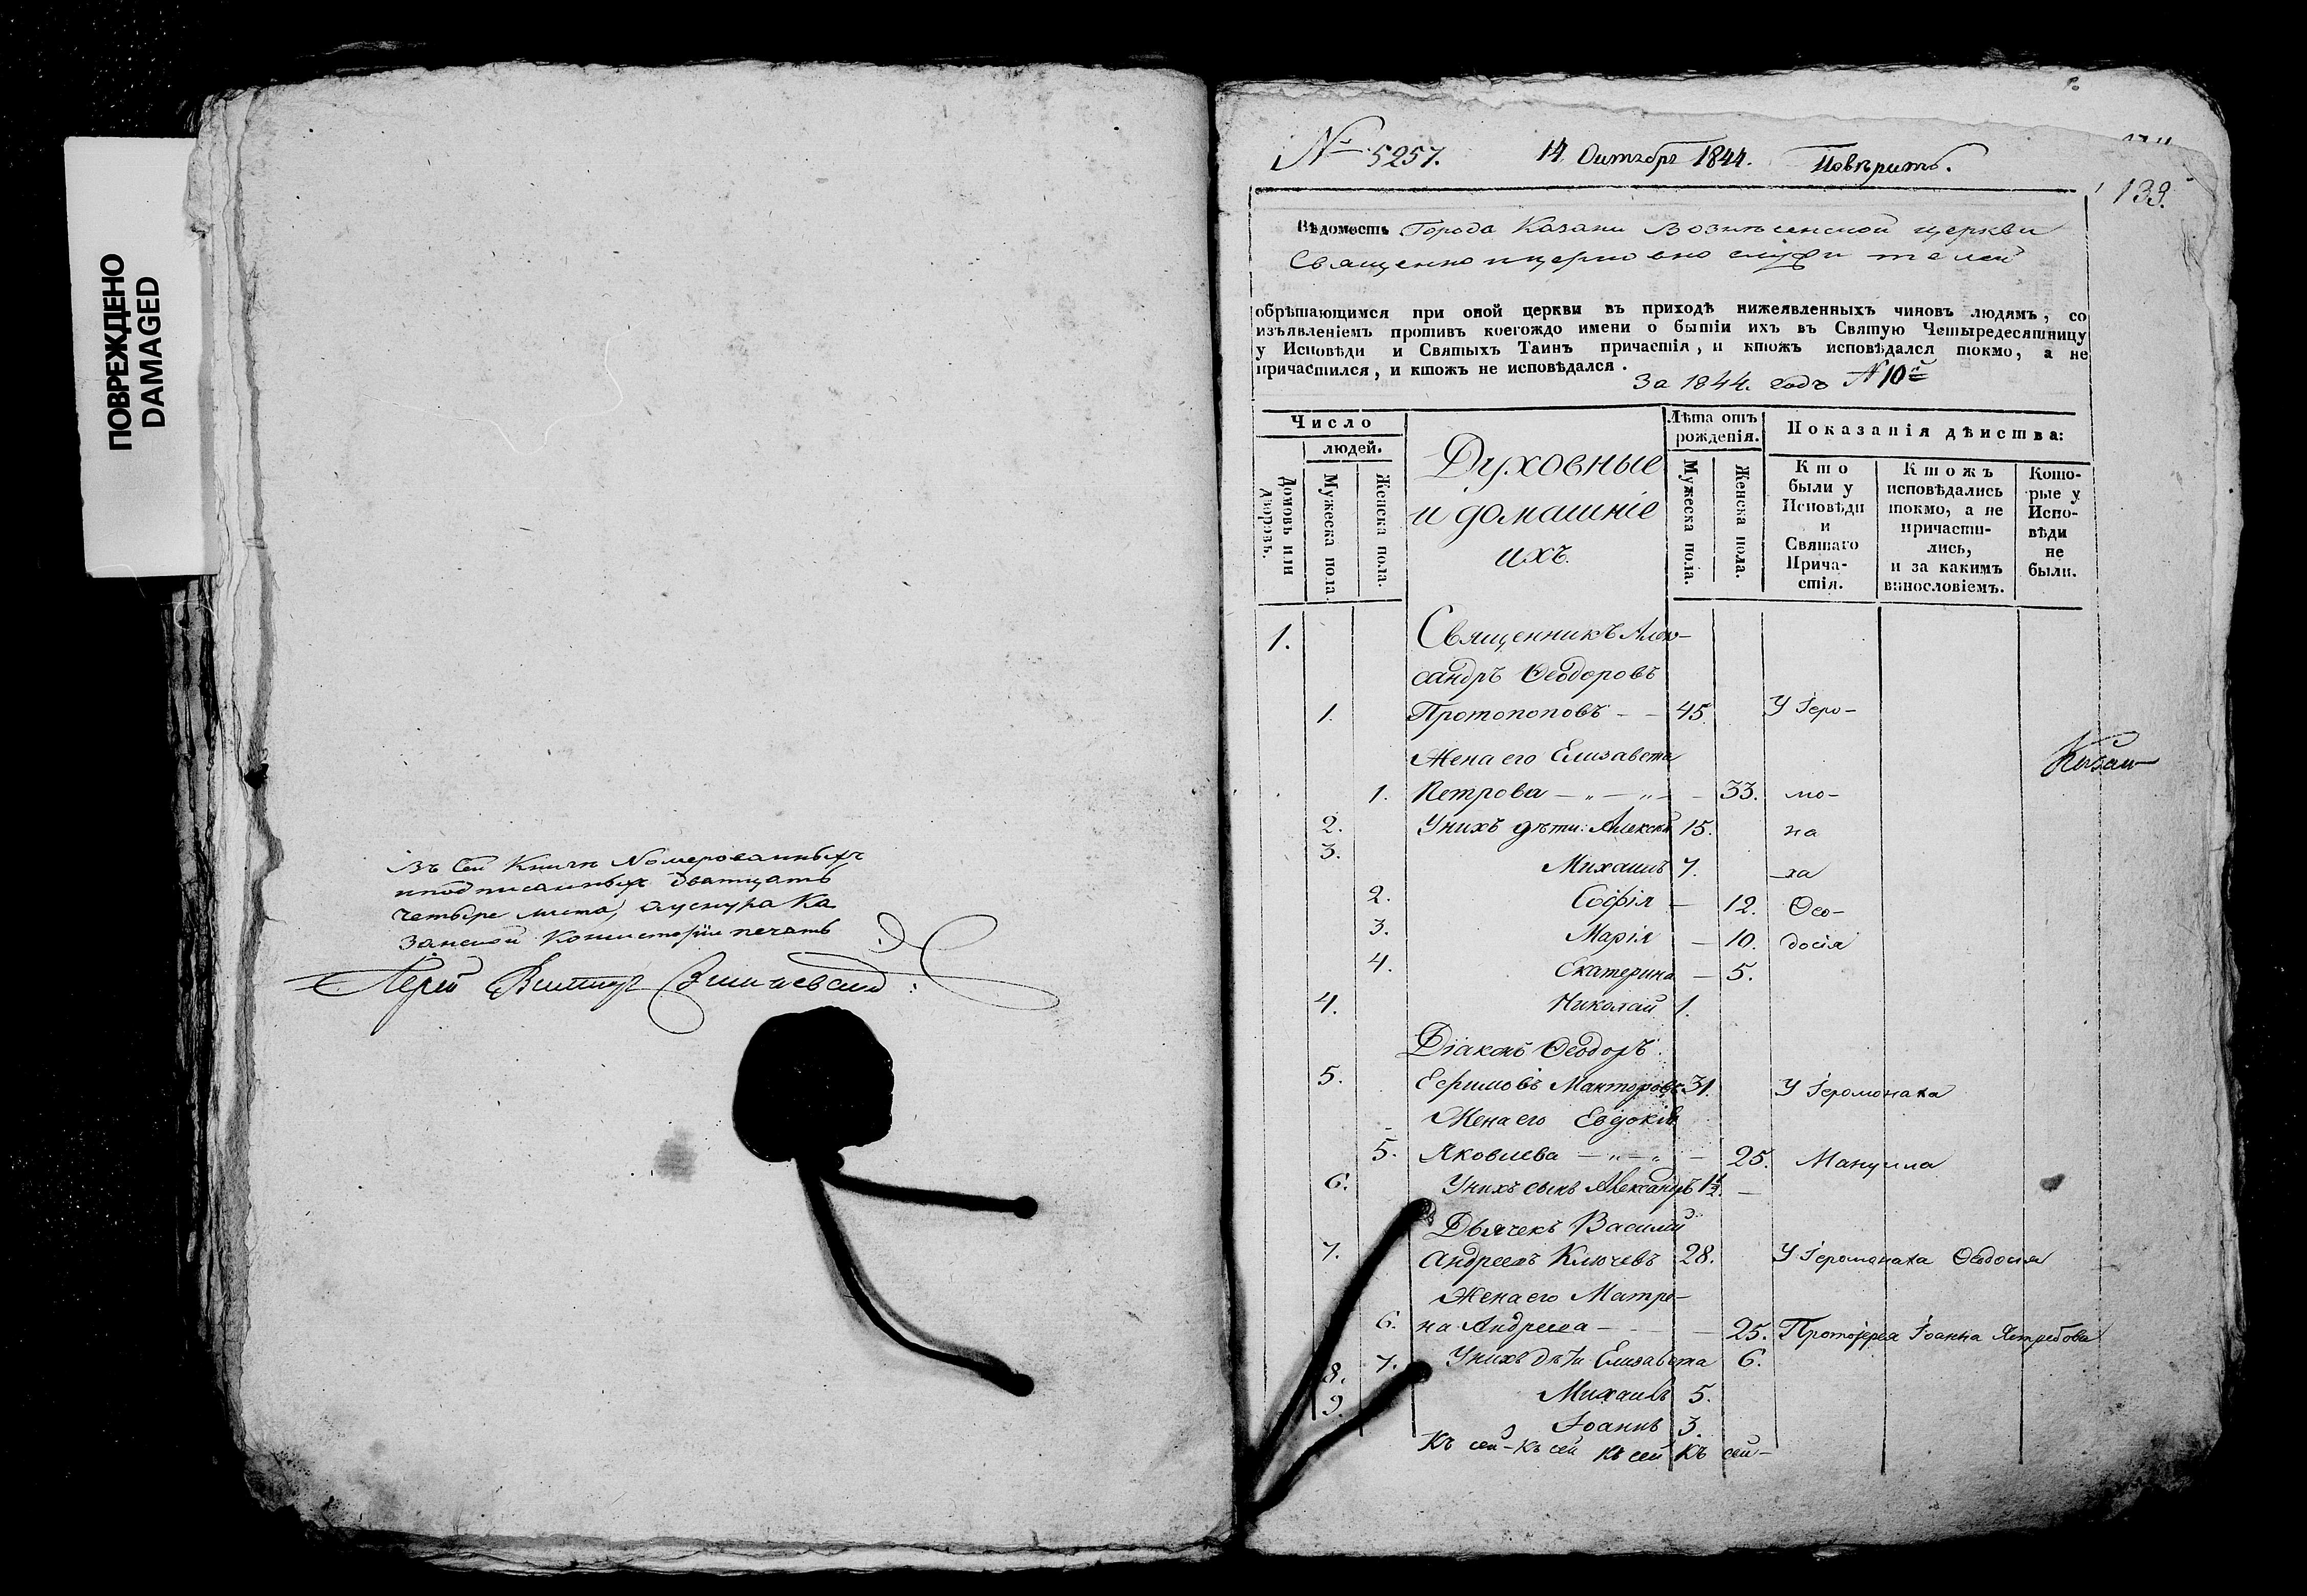 ПОВРЕЖДЕНО
DAMAGED
Въ сей Книгѣ Номерованныхъ
и подписанныхъ дватцать
четыре листа,
занской Консисторіи печать
Іерей
№ 5257.
14 Октября 1844.
Повѣрить.
133.
Вѣдомость Города Казани Вознесенской церкви
Священно и церковно служителей
обрѣтающимся при оной церкви въ приходѣ нижеявленныхъ чиновъ людямъ, со
изъявленіемъ противъ коегождо имени о бытіи ихъ въ Святую Четыредесятницу
у Исповѣди и Святыхъ Таинъ причастія, и ктожъ исповѣдался токмо, а не
причастился, и ктожъ не исповѣдался.
За 1844. годъ № 10й
Число
людей.
Домовъ или дворовъ.
Мужеска пола.
Женска пола.
Духовные
и домашніе
ихъ.
Лѣта отъ
рожденія.
Мужеска пола.
Женска пола.
Показанія дѣйства:
Кто
были у
Исповѣди
и
Святаго
Прича-
стія.
Ктожъ
исповѣдались
токмо, а не
причасти-
лись,
и за какимъ
винословіемъ.
Кото-
рые у
Испо-
вѣди
не
были.
1. Священникъ Алек-
сандръ Ѳеодоровъ
1. Протопоповъ - - 45. У Іеро-
Жена его Елисавета
1. Петрова - „ - „ - - 33. мо-
2. У нихъ дѣти: Алексѣй 15. на
3. Михаилъ 7. ха
2. Софія - 12. Ѳео-
3. Марія - 10. досія
4. Екатерина - 5.
4. Николай 1.
Діаконъ Ѳеодоръ
5. Ефимовъ 31. У Іеромонаха
Жена его Евдокія
5. Яковлева - „ - „ - 25. Мануила
6. У нихъ сынъ Александръ 1½. -
Дьячекъ Василій
7. Андреевъ Ключевъ 28. У Іеромонаха Ѳеодосія
Жена его Матро-
6. на Андреева - - - 25. Протоіерея Іоанна Ястребова
7. У нихъ дѣти Елисавета 6.
8. Михаилъ 5.
9. Іоаннъ 3.
Къ сей - Къ сей Къ сей Къ сей -
Казан